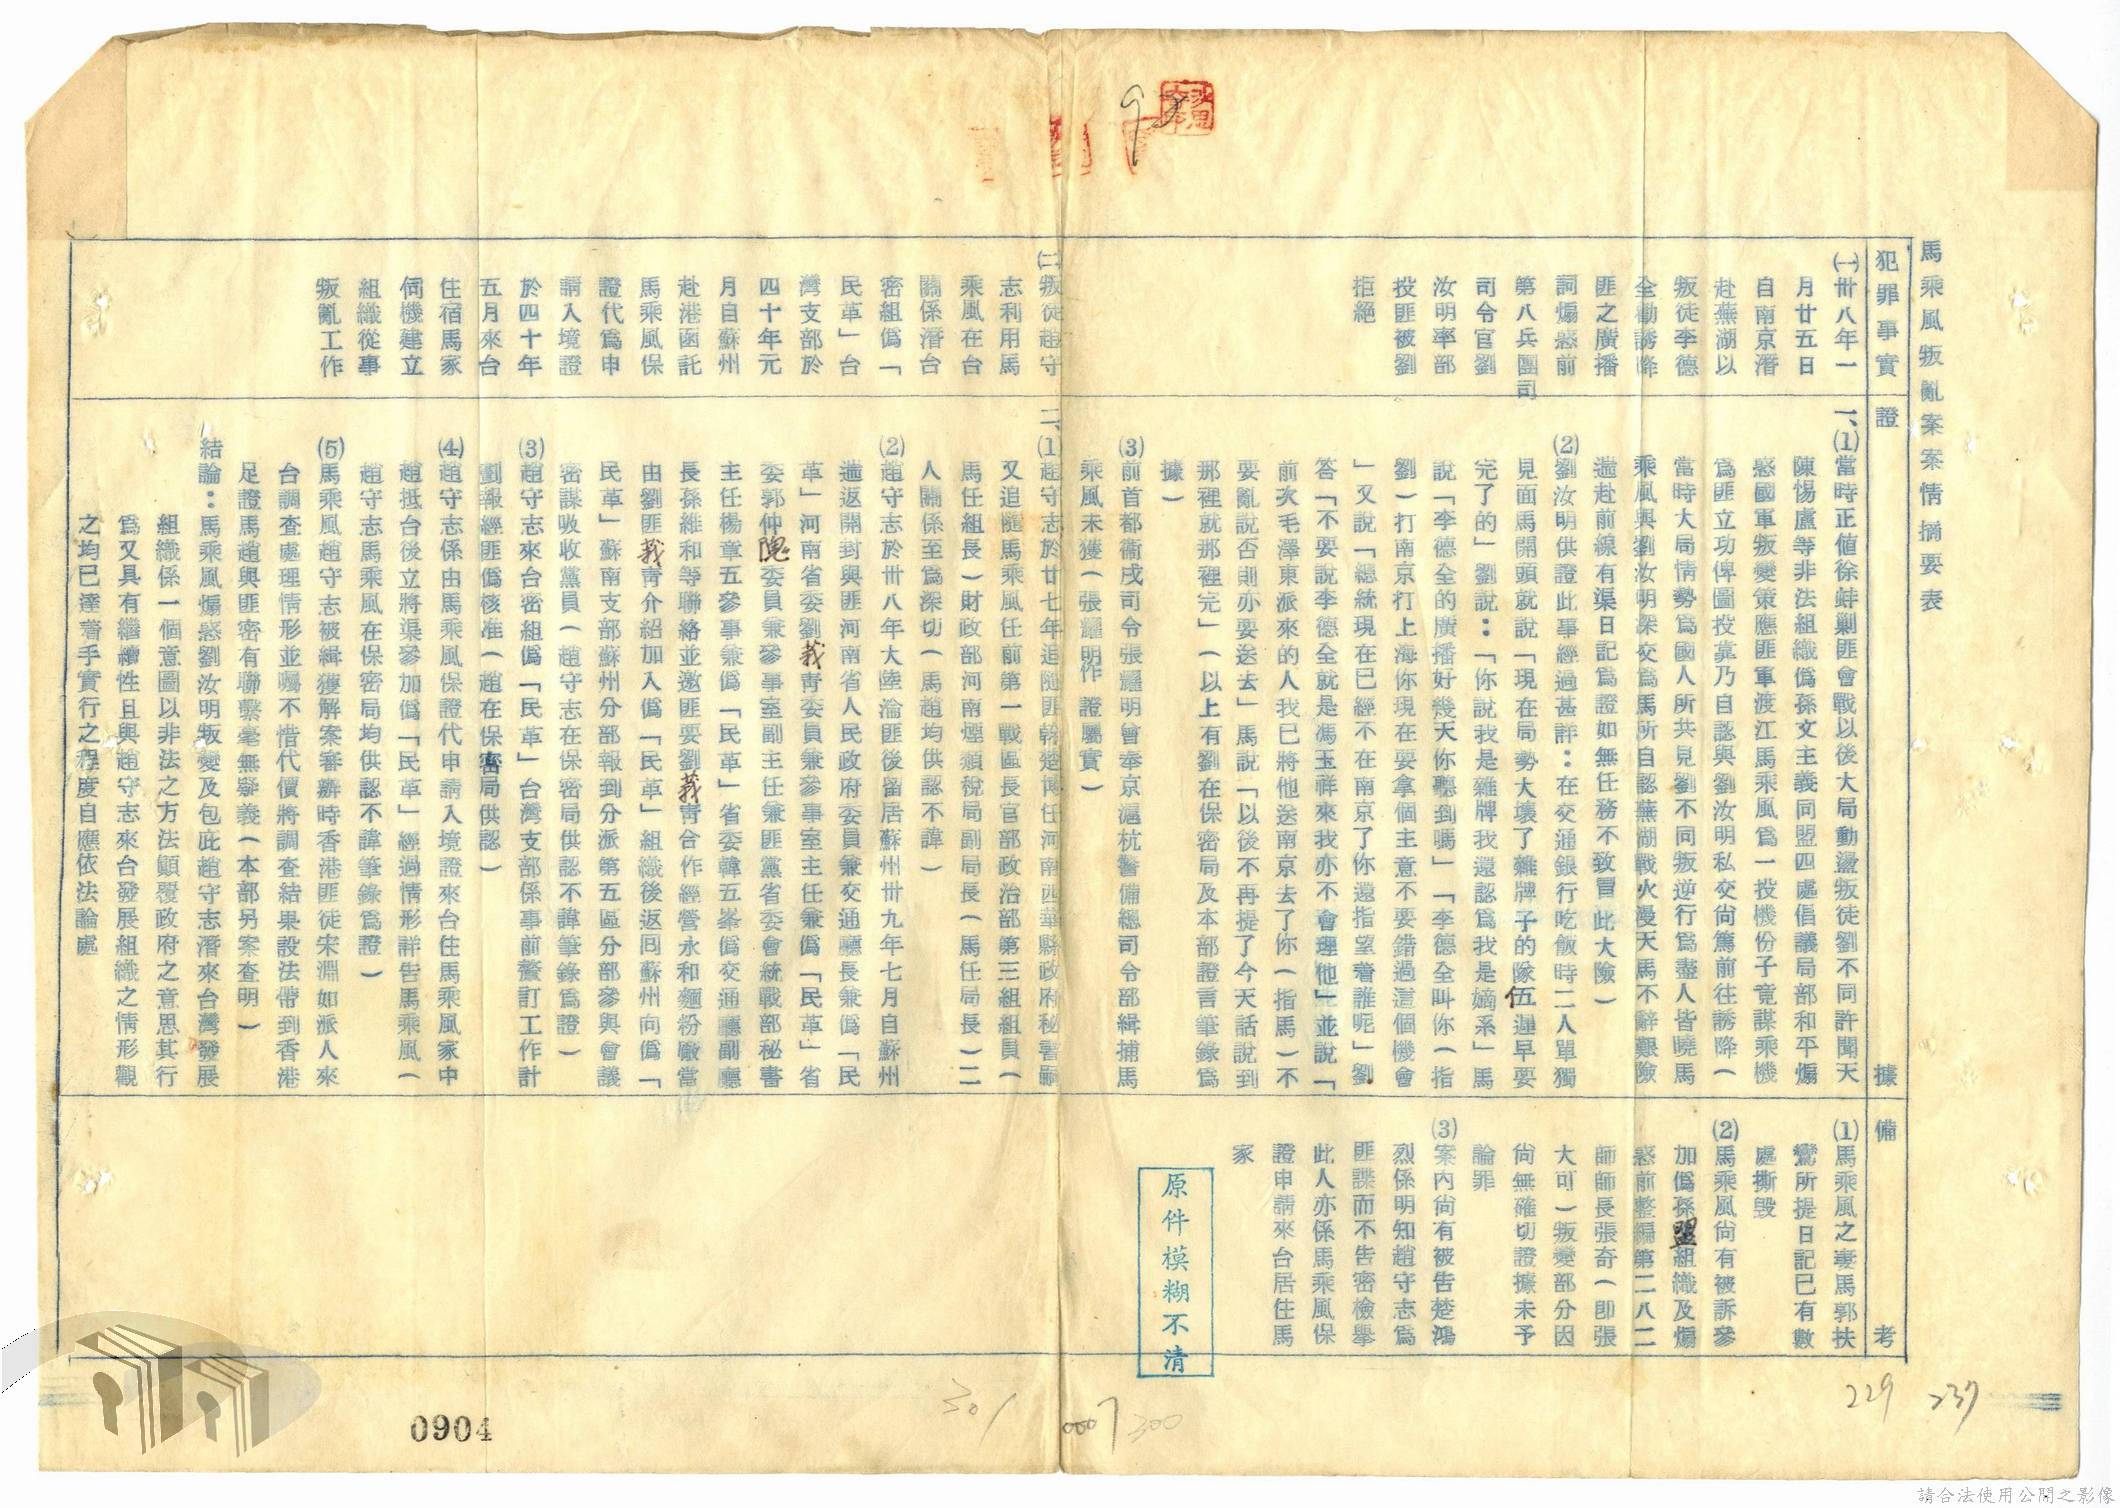 馬乘風叛亂案案情摘要表
犯罪事實
證據
備考
㈠卅八年一
月廿五日
自南京潛
赴蕪湖以
叛徒李德
全勸誘降
匪之廣播
詞煽惑前
第八兵團司
司令官劉
汝明率部
投匪被劉
拒絕
㈡叛徒趙守
志利用馬
乘風在台
關係潛台
密組偽「
民革」台
灣支部於
四十年元
月自蘇州
赴港函託
馬乘風保
證代為申
請入境證
於四十年
五月來台
住宿馬家
伺機建立
組織從事
叛亂工作
一、⑴當時正值徐蚌剿匪會戰以後大局動盪叛徒劉不同許聞天
陳惕盧等非法組織偽孫文主義同盟四處倡議局部和平煽
惑國軍叛變策應匪軍渡江馬乘風為一投機份子竟謀乘機
為匪立功俾圖投靠乃自認與劉汝明私交尚篤前往誘降(
當時大局情勢為國人所共見劉不同叛逆行為盡人皆曉馬
乘風與劉汝明深交為馬所自認蕪湖戰火漫天馬不辭艱險
遄赴前線有渠日記為證如無任務不致冒此大險)
⑵劉汝明供證此事經過甚詳：在交通銀行吃飯時二人單獨
見面馬開頭就說「現在局勢大壞了雜牌子的隊伍遲早要
完了的」劉說：「你說我是雜牌我還認為我是嫡系」馬
說「李德全的廣播好幾天你聽到嗎」「李德全叫你(指
劉)打南京打上海你現在要拿個主意不要錯過這個機會
」又說「總統現在已經不在南京了你還指望著誰呢」劉
答「不要說李德全就是馮玉祥來我亦不會理他」並說「
前次毛澤東派來的人我已將他送南京去了你(指馬)不
要亂說否則亦要送去」馬說「以後不再提了今天話說到
那裡就那裡完」(以上有劉在保密局及本部證言筆錄為
據)
⑶前首都衞戍司令張耀明曾奉京滬杭警備總司令部緝捕馬
乘風未獲(張耀明作證屬實)
二、⑴趙守志於廿七年追隨匪幹楚博任河南西華縣政府秘書嗣
又追隨馬乘風任前第一戰區長官部政治部第三組組員(
馬任組長)財政部河南煙類稅局副局長(馬任局長)二
人關係至為深切(馬趙均供認不諱)
⑵趙守志於卅八年大陸淪匪後留居蘇州卅九年七月自蘇州
遄返開封與匪河南省人民政府委員兼交通廳長兼偽「民
革」河南省委劉莪青委員兼參事室主任兼偽「民革」省
委郭仲隗委員兼參事室副主任兼匪黨省委會統戰部秘書
主任楊章五參事兼偽「民革」省委韓五峯偽交通廳副廳
長孫維和等聯絡並邀匪要劉莪青合作經營永和麵粉廠當
由劉匪莪青介紹加入偽「民革」組織後返囘蘇州向偽「
民革」蘇南支部蘇州分部報到分派第五區分部參與會議
密謀吸收黨員(趙守志在保密局供認不諱筆錄為證)
⑶趙守志來台密組偽「民革」台灣支部係事前釐訂工作計
劃報經匪偽核准(趙在保密局供認)
⑷趙守志係由馬乘風保證代申請入境證來台住馬乘風家中
趙抵台後立將渠參加偽「民革」經過情形詳告馬乘風(
趙守志馬乘風在保密局均供認不諱筆錄為證)
⑸馬乘風趙守志被緝獲解案審辦時香港匪徒宋淵如派人來
台調查處理情形並囑不惜代價將調查結果設法帶到香港
足證馬趙與匪密有聯繫毫無疑義(本部另案查明)
結論：馬乘風煽惑劉汝明叛變及包庇趙守志潛來台灣發展
組織係一個意圖以非法之方法顛覆政府之意思其行
為又具有繼續性且與趙守志來台發展組織之情形觀
之均已達著手實行之程度自應依法論處
⑴馬乘風之妻馬郭扶
鸞所提日記已有數
處撕毀
⑵馬乘風尚有被訴參
加偽孫盟組織及煽
惑前整編第二八二
師師長張奇(即張
大可)叛變部分因
尚無確切證據未予
論罪
⑶案內尚有被告楚鴻
烈係明知趙守志為
匪諜而不告密檢舉
此人亦係馬乘風保
證申請來台居住馬
家
原件模糊不清
0904
301
0007
300
229
237
請合法使用公開之影像